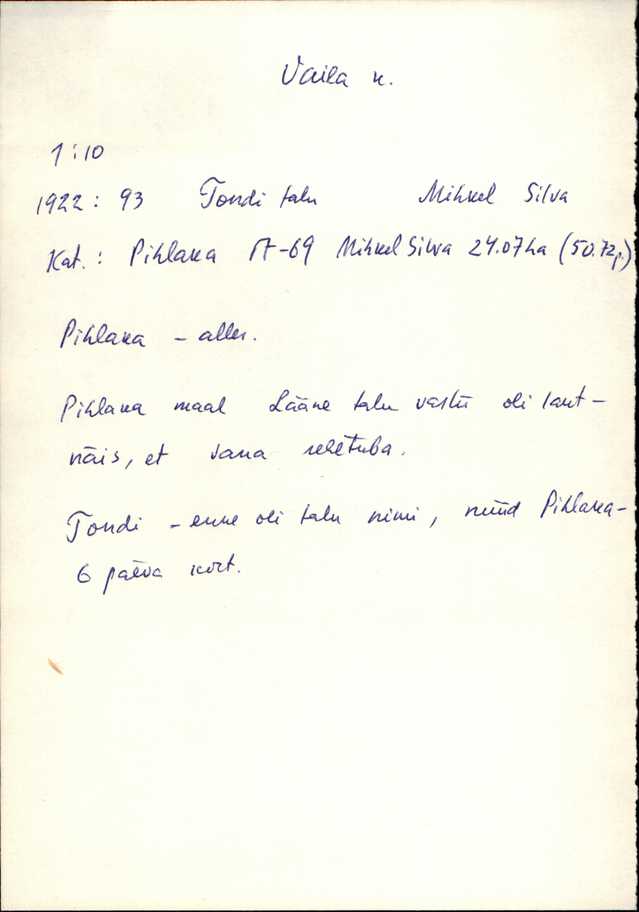 Vaila k.
1:10
1922: 93 Tondi talu Mihkel Silva
Kat.: Pihlaka A-69 Mihkel Silva 24.07 ha (50.72 p.)
Pihlaka - alles.
Pihlaka maal Lääne talu vastu oli laut -
näis, et vana rehetuba.
Tondi - enne oli talu nimi, nüüd Pihlaka -
6 päeva koht.